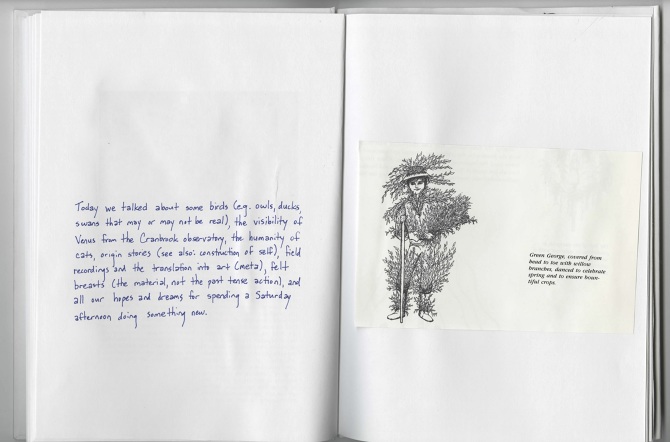 Today we talked about some birds (e.g. owls, ducks,
swans that may or may not be real), the visibility of
Venus from the Cranbrook observatory, the humanity of
cats, origin stores (see also: construction of self), field
recordings and the translation into art (meta), felt
breasts (the material, not the past tense action), and
all our hopes and dreams for spending a Saturday
afternoon doing something new.
Green George, covered from
head to toe with willow
branches, danced to celebrate
spring and to ensure boun-
tiful crops.